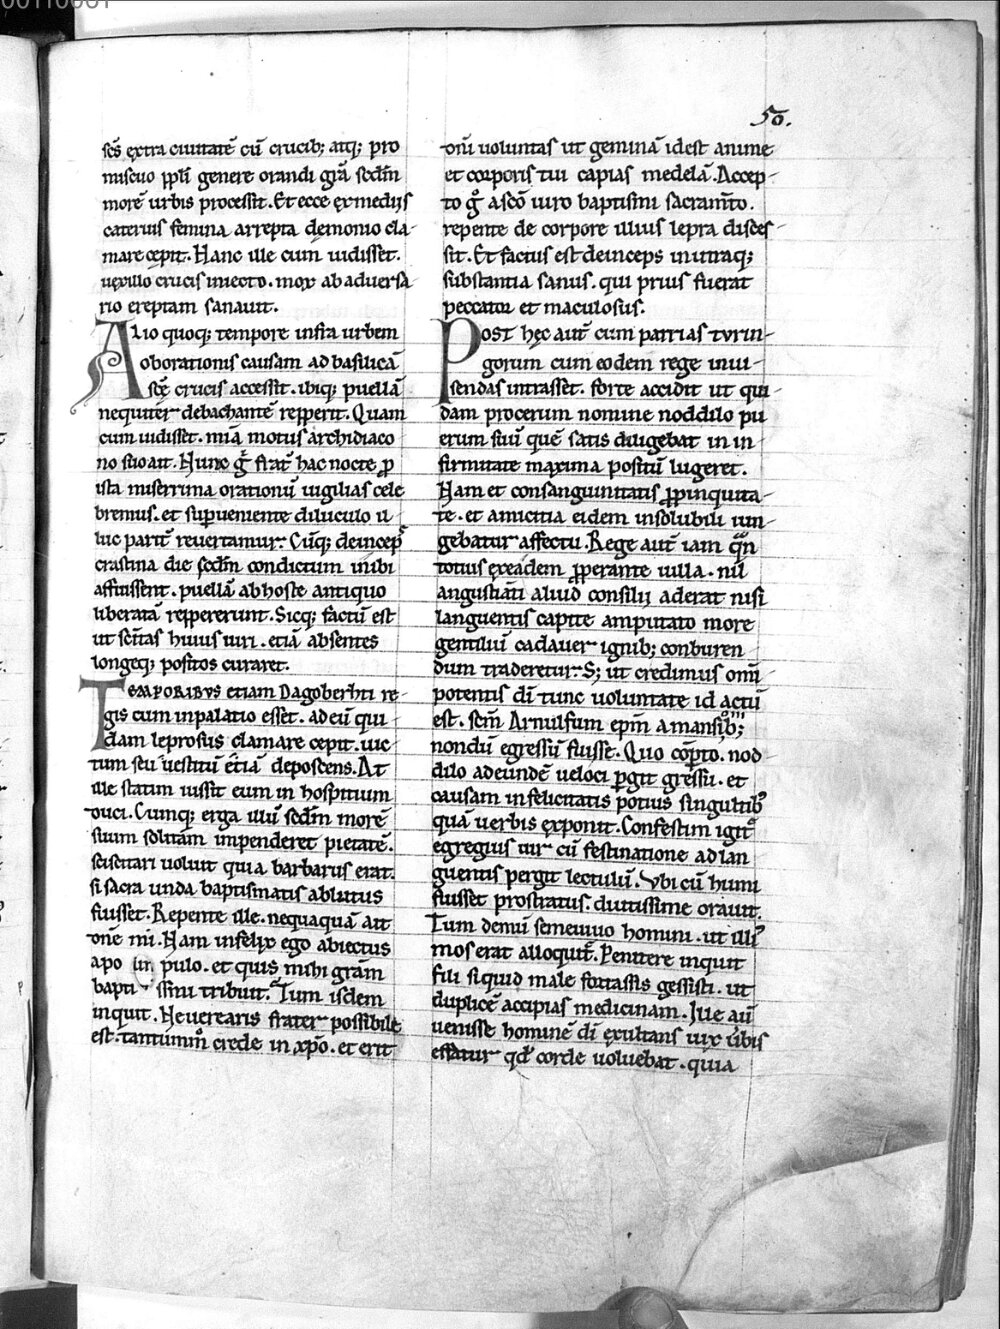 50.
scs̄ extra ciuitatē cū crucib; atq; pro
miscuo ppl̄i genere orandi grā scdm̄
morē urbis processit. Et ecce ex mediis
cateruis femina arrepta demonio cla-
mare cepit. Hanc ille cum uidisset.
uexillo crucis iniecto. mox ab aduersa
rio ereptam sanauit.
Alio quoq; tempore infra urbem
oborationis causam ad basilicā
scē crucis accessit. ibiq; puellā
nequiter debachantē repperit. Quam
cum uidisset. mīa motus archidiaco
no suo ait. Hunc g̊ frat̄ hac nocte ꝓ
ista miserrima orationū uigilias cele
bremus. et supueniente diluculo il
luc parit̄ reuertamur. Cūq; deincep̄
crastina die scdm̄ condictum inibi
affuissent. puellā ab hoste antiquo
liberatā reppererunt. Sicq; factū est
ut sc̄itas huius uiri. etiā absentes
longeq; positos curaret.
Temporibus etiam Dagoberhti re-
gis cum in palatio esset. ad eū qui
dam leprosus clamare cepit. uic
tum seu uestitū etiā deposcens. At
ille statim iussit eum in hospitium
duci. Cumq; erga illū scdm̄ morē
suum solitam impenderet pietatē.
sciscitari uoluit quia barbarus erat.
si sacra unda baptismatis ablutus
fuisset. Repente ille. nequaquā ait
dn̄e mi. Nam infelix ego abiectus
apo in pulo. et quis mihi grām
bapti smi tribuit. Tum isdem
inquit. Ne uerearis frater possibile
est. tantummͦ crede in xp̄o. et erit
om̄i uoluntas ut geminā idest anime
et corporis tui capias medelā. Accep-
to g̊ a scō uiro baptismi sacramt̄o.
repente de corpore illius lepra disces-
sit. Et factus est deinceps in utraq;
substantia sanus. qui prius fuerat
peccator et maculosus.
Post hęc aut̄ cum patrias turin-
gorum cum eodem rege inui-
sendas intrasset. forte accidit ut qui-
dam procerum nomine noddilo pu
erum suū quē satis diligebat in in-
firmitate maxima positū lugeret.
Nam et consanguinitatis ꝓpinquita-
te. et amicitia eidem insolubili iun-
gebatur affectu. Rege aut̄ iam qn̄
totius ex eadem ꝓperante uilla. nil
angustiati aliud consilii aderat nisi
languentis capite amputato more
gentiliū cadauer ignib; conburen
dum traderetur. S; ut credimus om̄i
potentis dī tunc uoluntate id actū
est. scm̄ Arnulfum epm̄ a mansionib;
nondū egressū fuisse. Quo cōpto. nod
dilo ad eundē ueloci pgit gressu. et
causam infelicitatis potius singultib;
quā uerbis exponit. Confestim igit̄
egregius uir cū festinatione ad lan
guentis pergit lectulū. Vbi cū humi
fuisset prostratus. diutissime orauit.
Tum demū semeuiuo homini. ut illi
mos erat alloquit̄. Penitere inquit
fili siquid male fortassis gessisti. ut
duplicē accipias medicinam. Iile aū
uenisse hominē dī exultans uix ūbis
effatur qd̄ corde uoluebat. quia